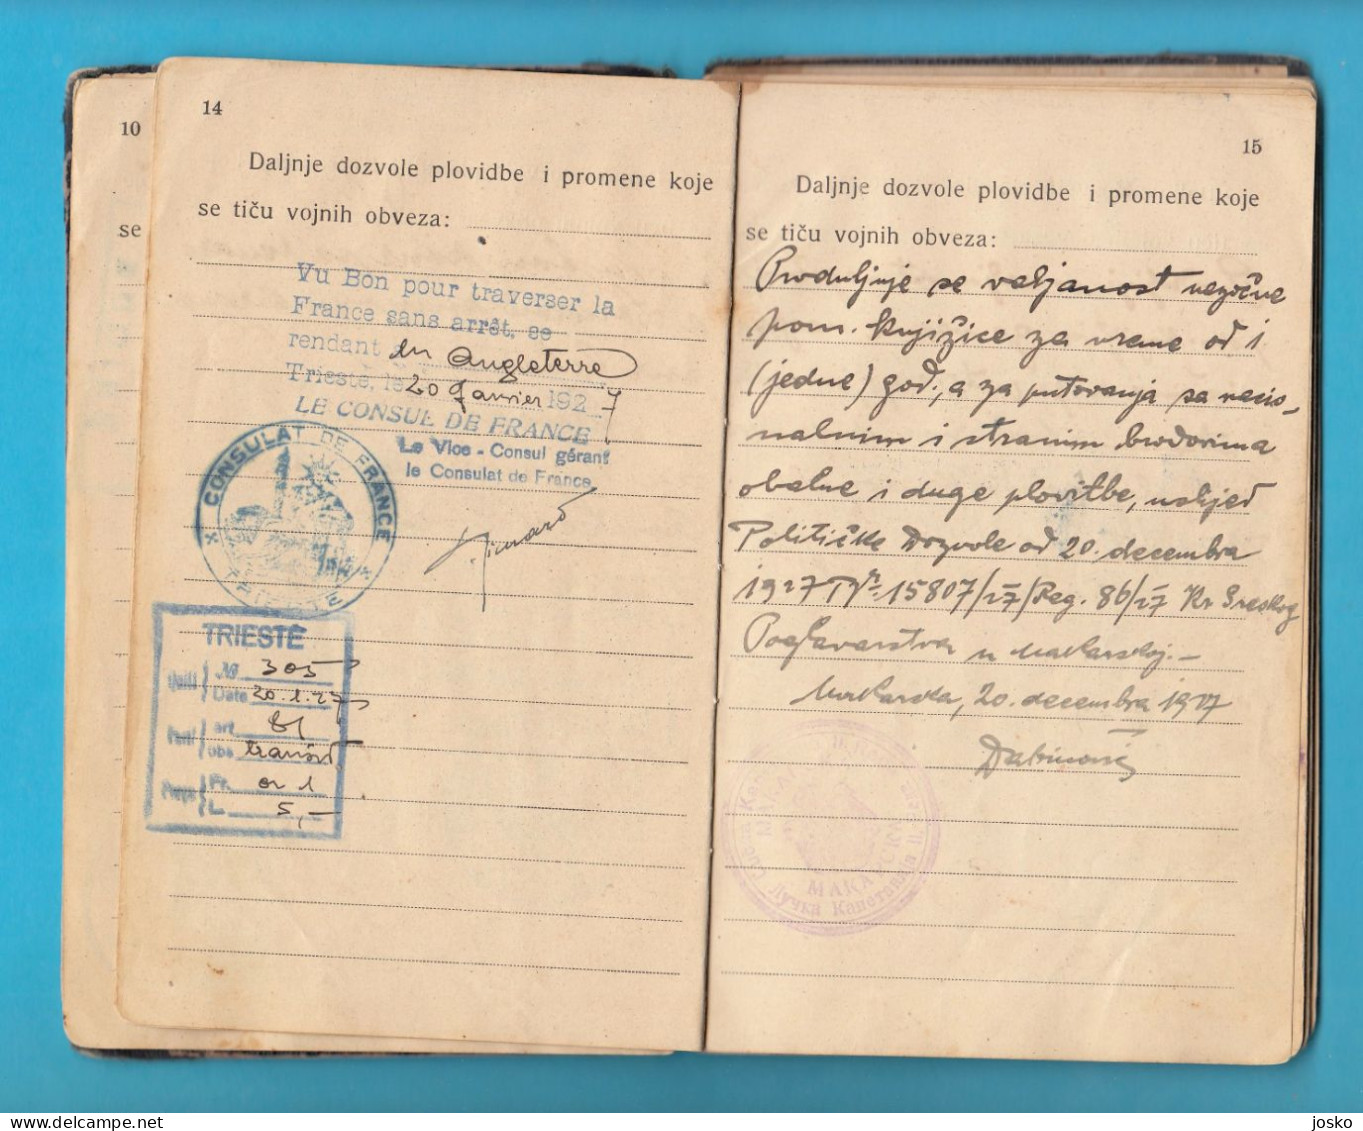 10
se
14
Daljnje dozvole plovidbe i promene koje
se tiču vojnih obveza:
Vu Bon pour traverser la
France sans arrêt, se
rendant en Angleterre
Trieste, le 20 Janvier 1927
LE CONSUL DE FRANCE
Le Vice - Consul gérant
le Consulat de France
CONSULAT DE FRANCE
TRIESTE
TRIESTE
No 305
Date 20.1.27
art.
obs transit
Fr. or 1
L. 5,-
15
Daljnje dozvole plovidbe i promene koje
se tiču vojnih obveza:
Produljuje se valjanost nezočne
pom. knjižice za vreme od 1
(jedne) god., a za putovanja sa nacio-
nalnim i stranim brodovima
obalne i duge plovitbe, usljed
Političke Dozvole od 20. decembra
1927 15807/27/Reg. 86/27 Kr Sreskog
Poglavarstva u Makarskoj.-
Makarska, 20. decembra 1927
Лучка Капетанија